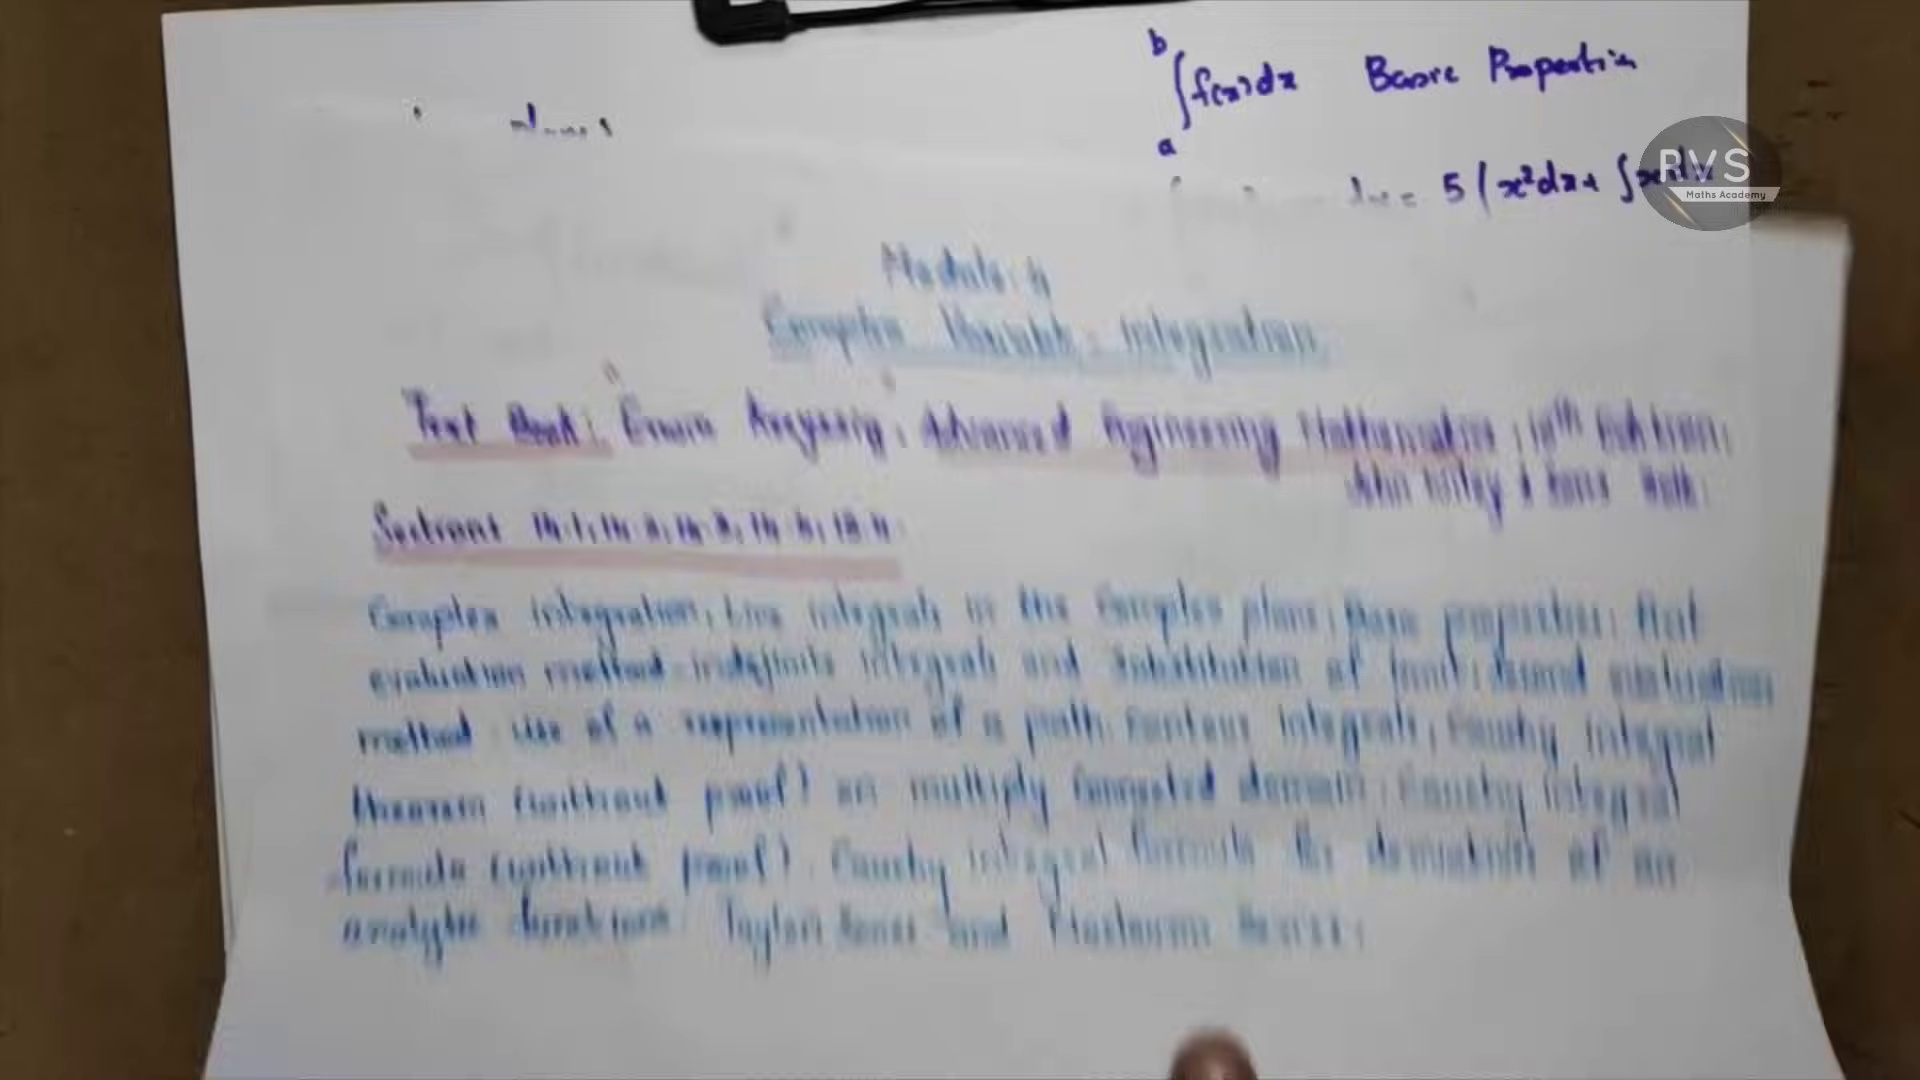 b
∫f(x)dx Basic Properties
a
dx = 5 ∫x²dx + ∫
RVS
Maths Academy
Module: 4
Complex Variable - Integration
Text Book: Erwin Kreyszig, Advanced Engineering Mathematics, 10th Edition,
John Wiley & Sons
Sections 14.1, 14.2, 14.3, 14.4, 15.4
Complex integration, Line integrals in the Complex plane, Basic properties, First
evaluation method-indefinite integrals and Substitution of limit, Second evaluation
method - Use of a representation of a path Contour integrals, Cauchy integral
theorem (without proof) on multiply Connected domain, Cauchy integral
formula (without proof), Cauchy integral formula for derivatives of an
analytic function Taylor Series and Maclaurin Series.